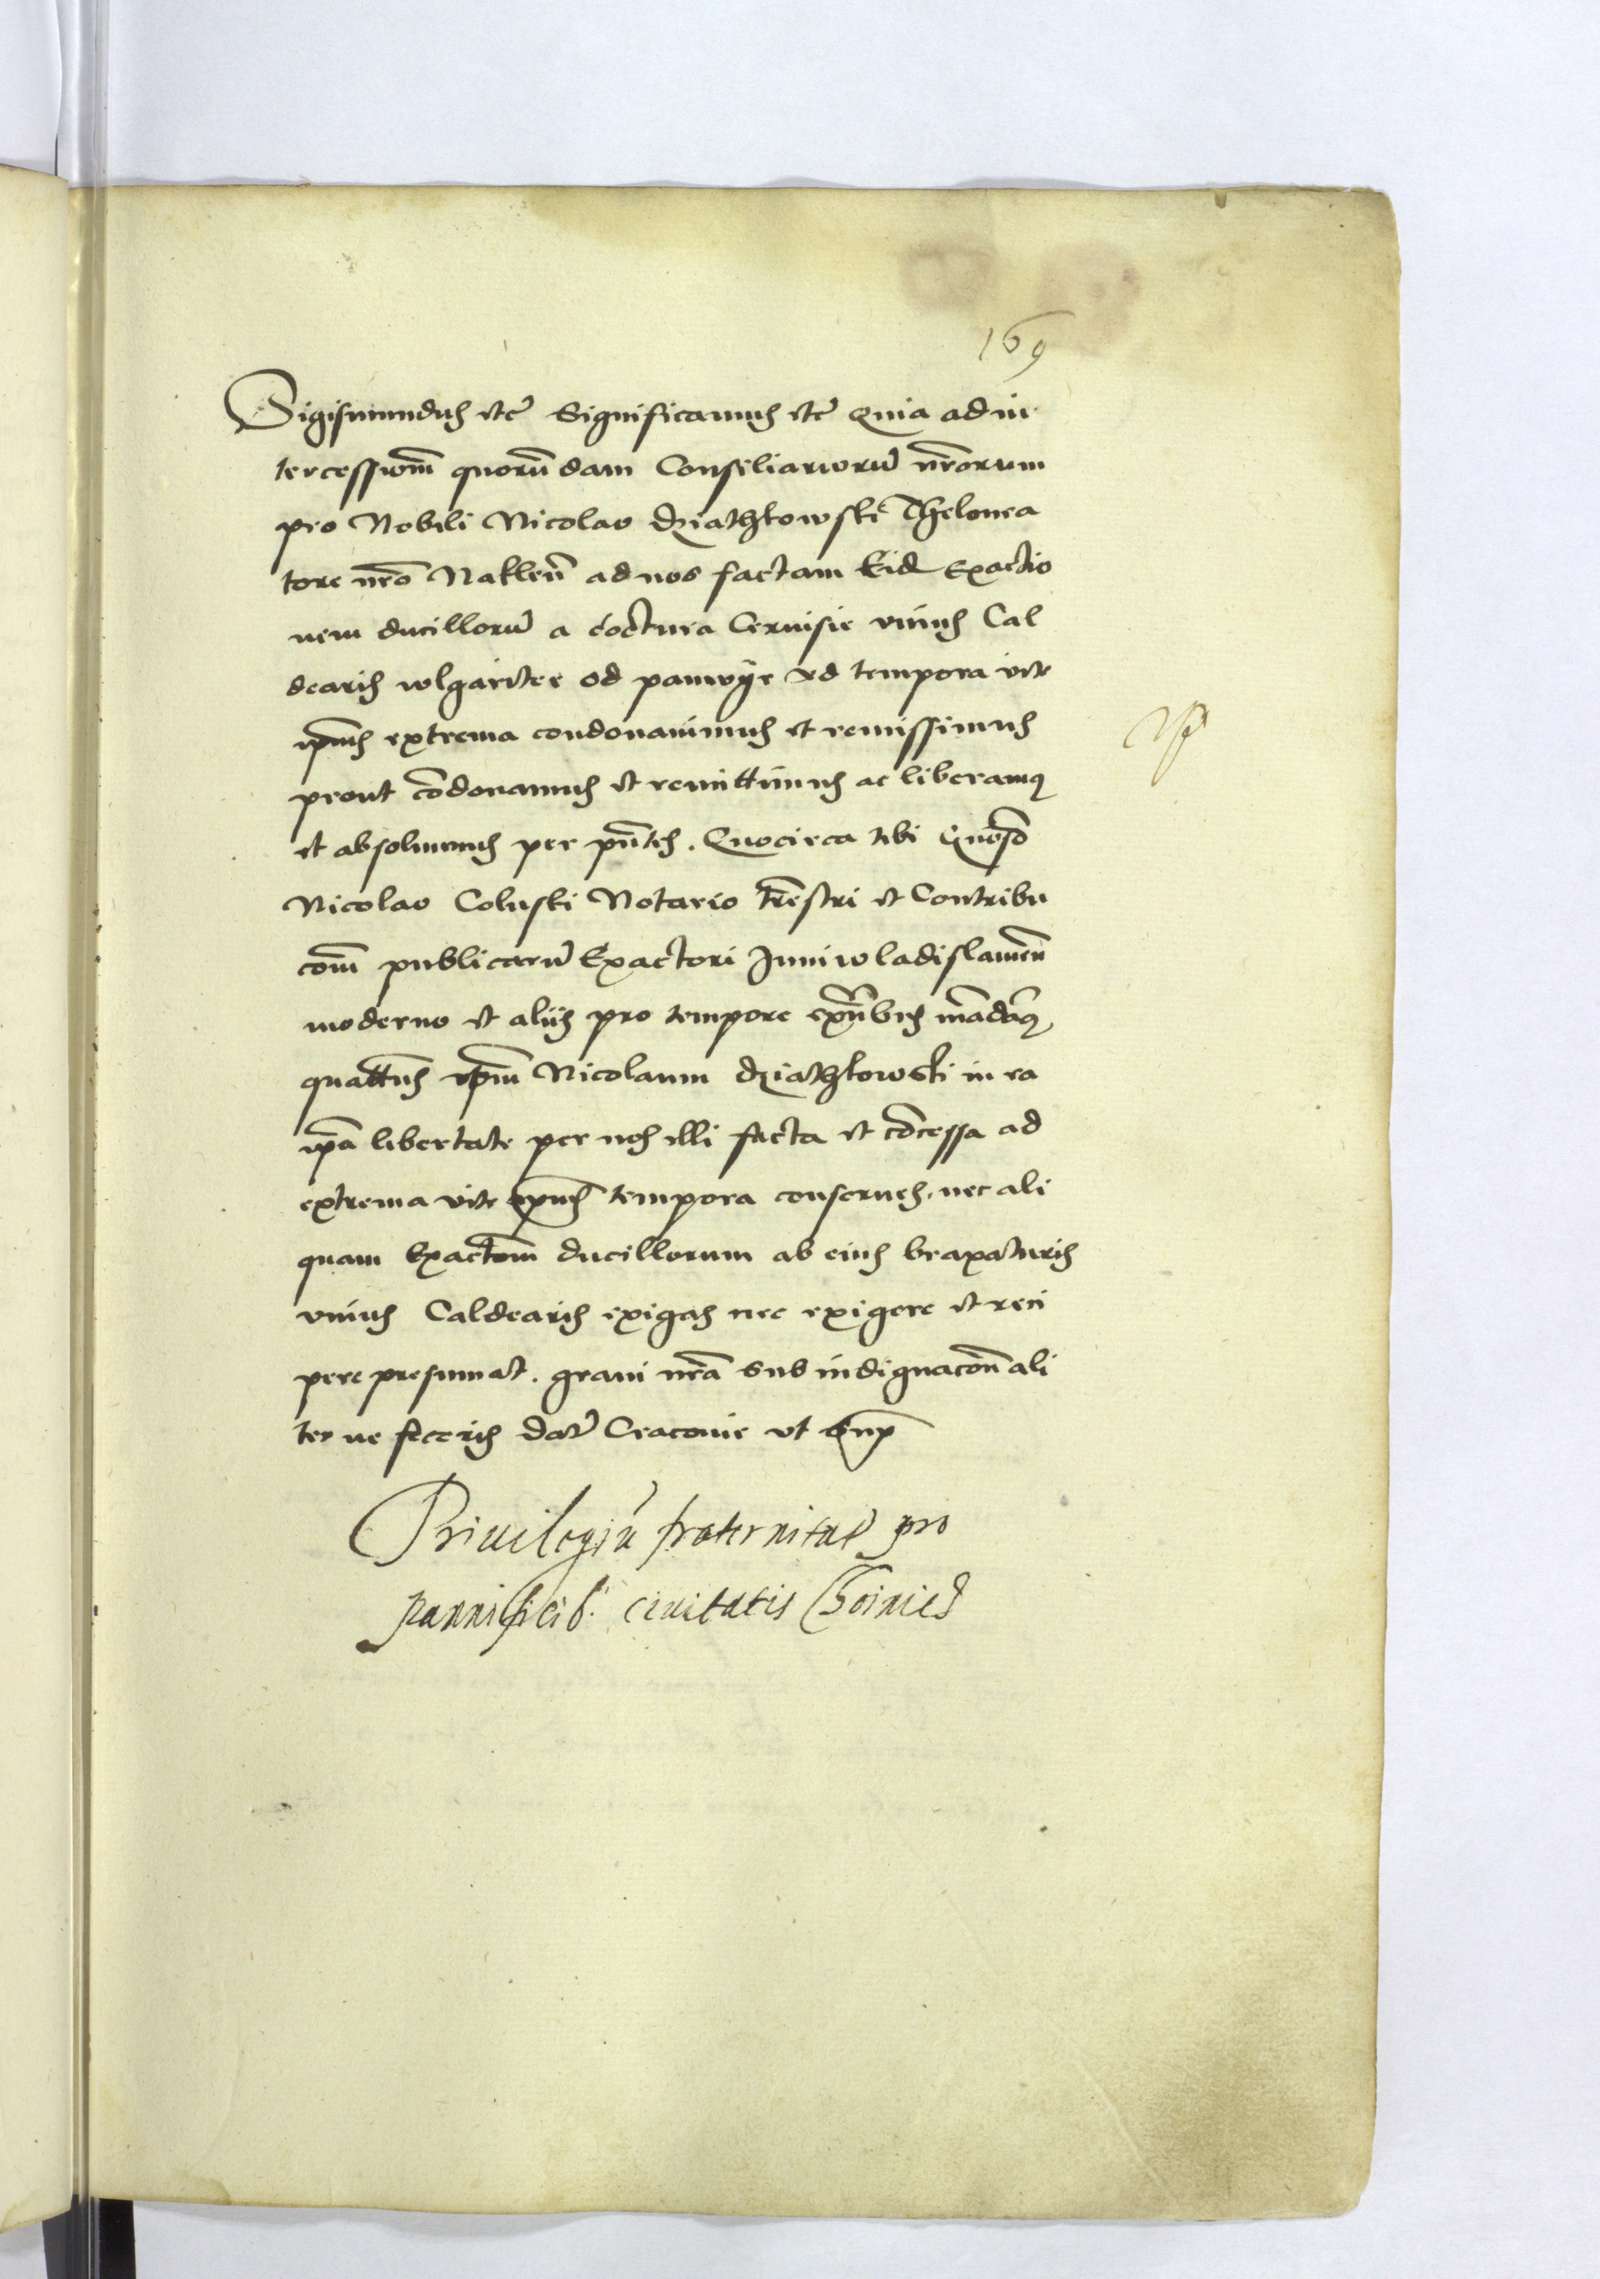 169
Sigismundus etc Significamus etc Quia ad in
tercessionem quorundam Consiliariorum nrorum
pro Nobili Nicolao dziathkowski Thelonea
tore nro Naklen ad nos factam Eid Exactio
nem ducillorum a coctura Cervisie unius Cal
dearis wlgariter od panwye ad tempora vite
ipius extrema condonavimus et remissimus
prout condonamus et remittimus ac liberamus
et absolvimus per pntes. Quocirca tibi Gnoso
Nicolao Coluski Notario trestri et Contribu
conm publicarum Exactori Juniwladislamien
moderno et aliis pro tempore exnbus mandamus
quattenus ipum Nicolaum dziathkowski in ea
ipa libertate per nos illi facta et concessa ad
extrema vite ipius tempora conserves. nec ali
quam Exactionem ducillorum ab eius braxaturis
unius Caldearis exigas nec exigere et reci
pere presumat. gravi nra sub indignacone ali
ter ne feceris dat Cracovie ut Sup
Privilegiu fraternitat pro
pannificib. civitatis